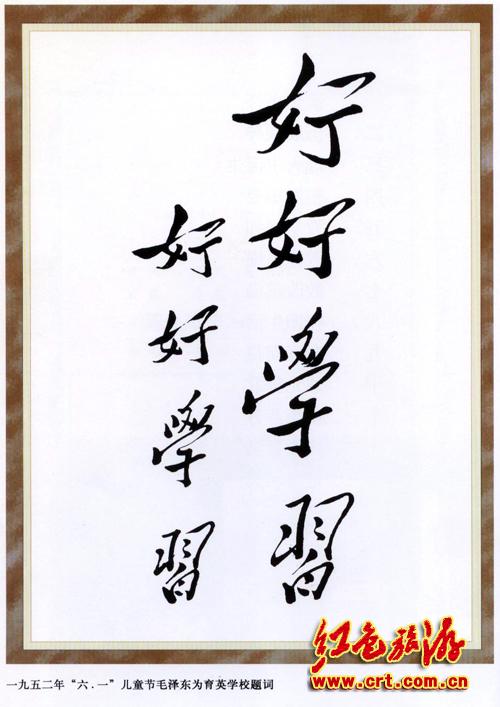 好好學習
好好學習
一九五二年“六.一”儿童节毛泽东为育英学校题词
红色旅游
www.crt.com.cn